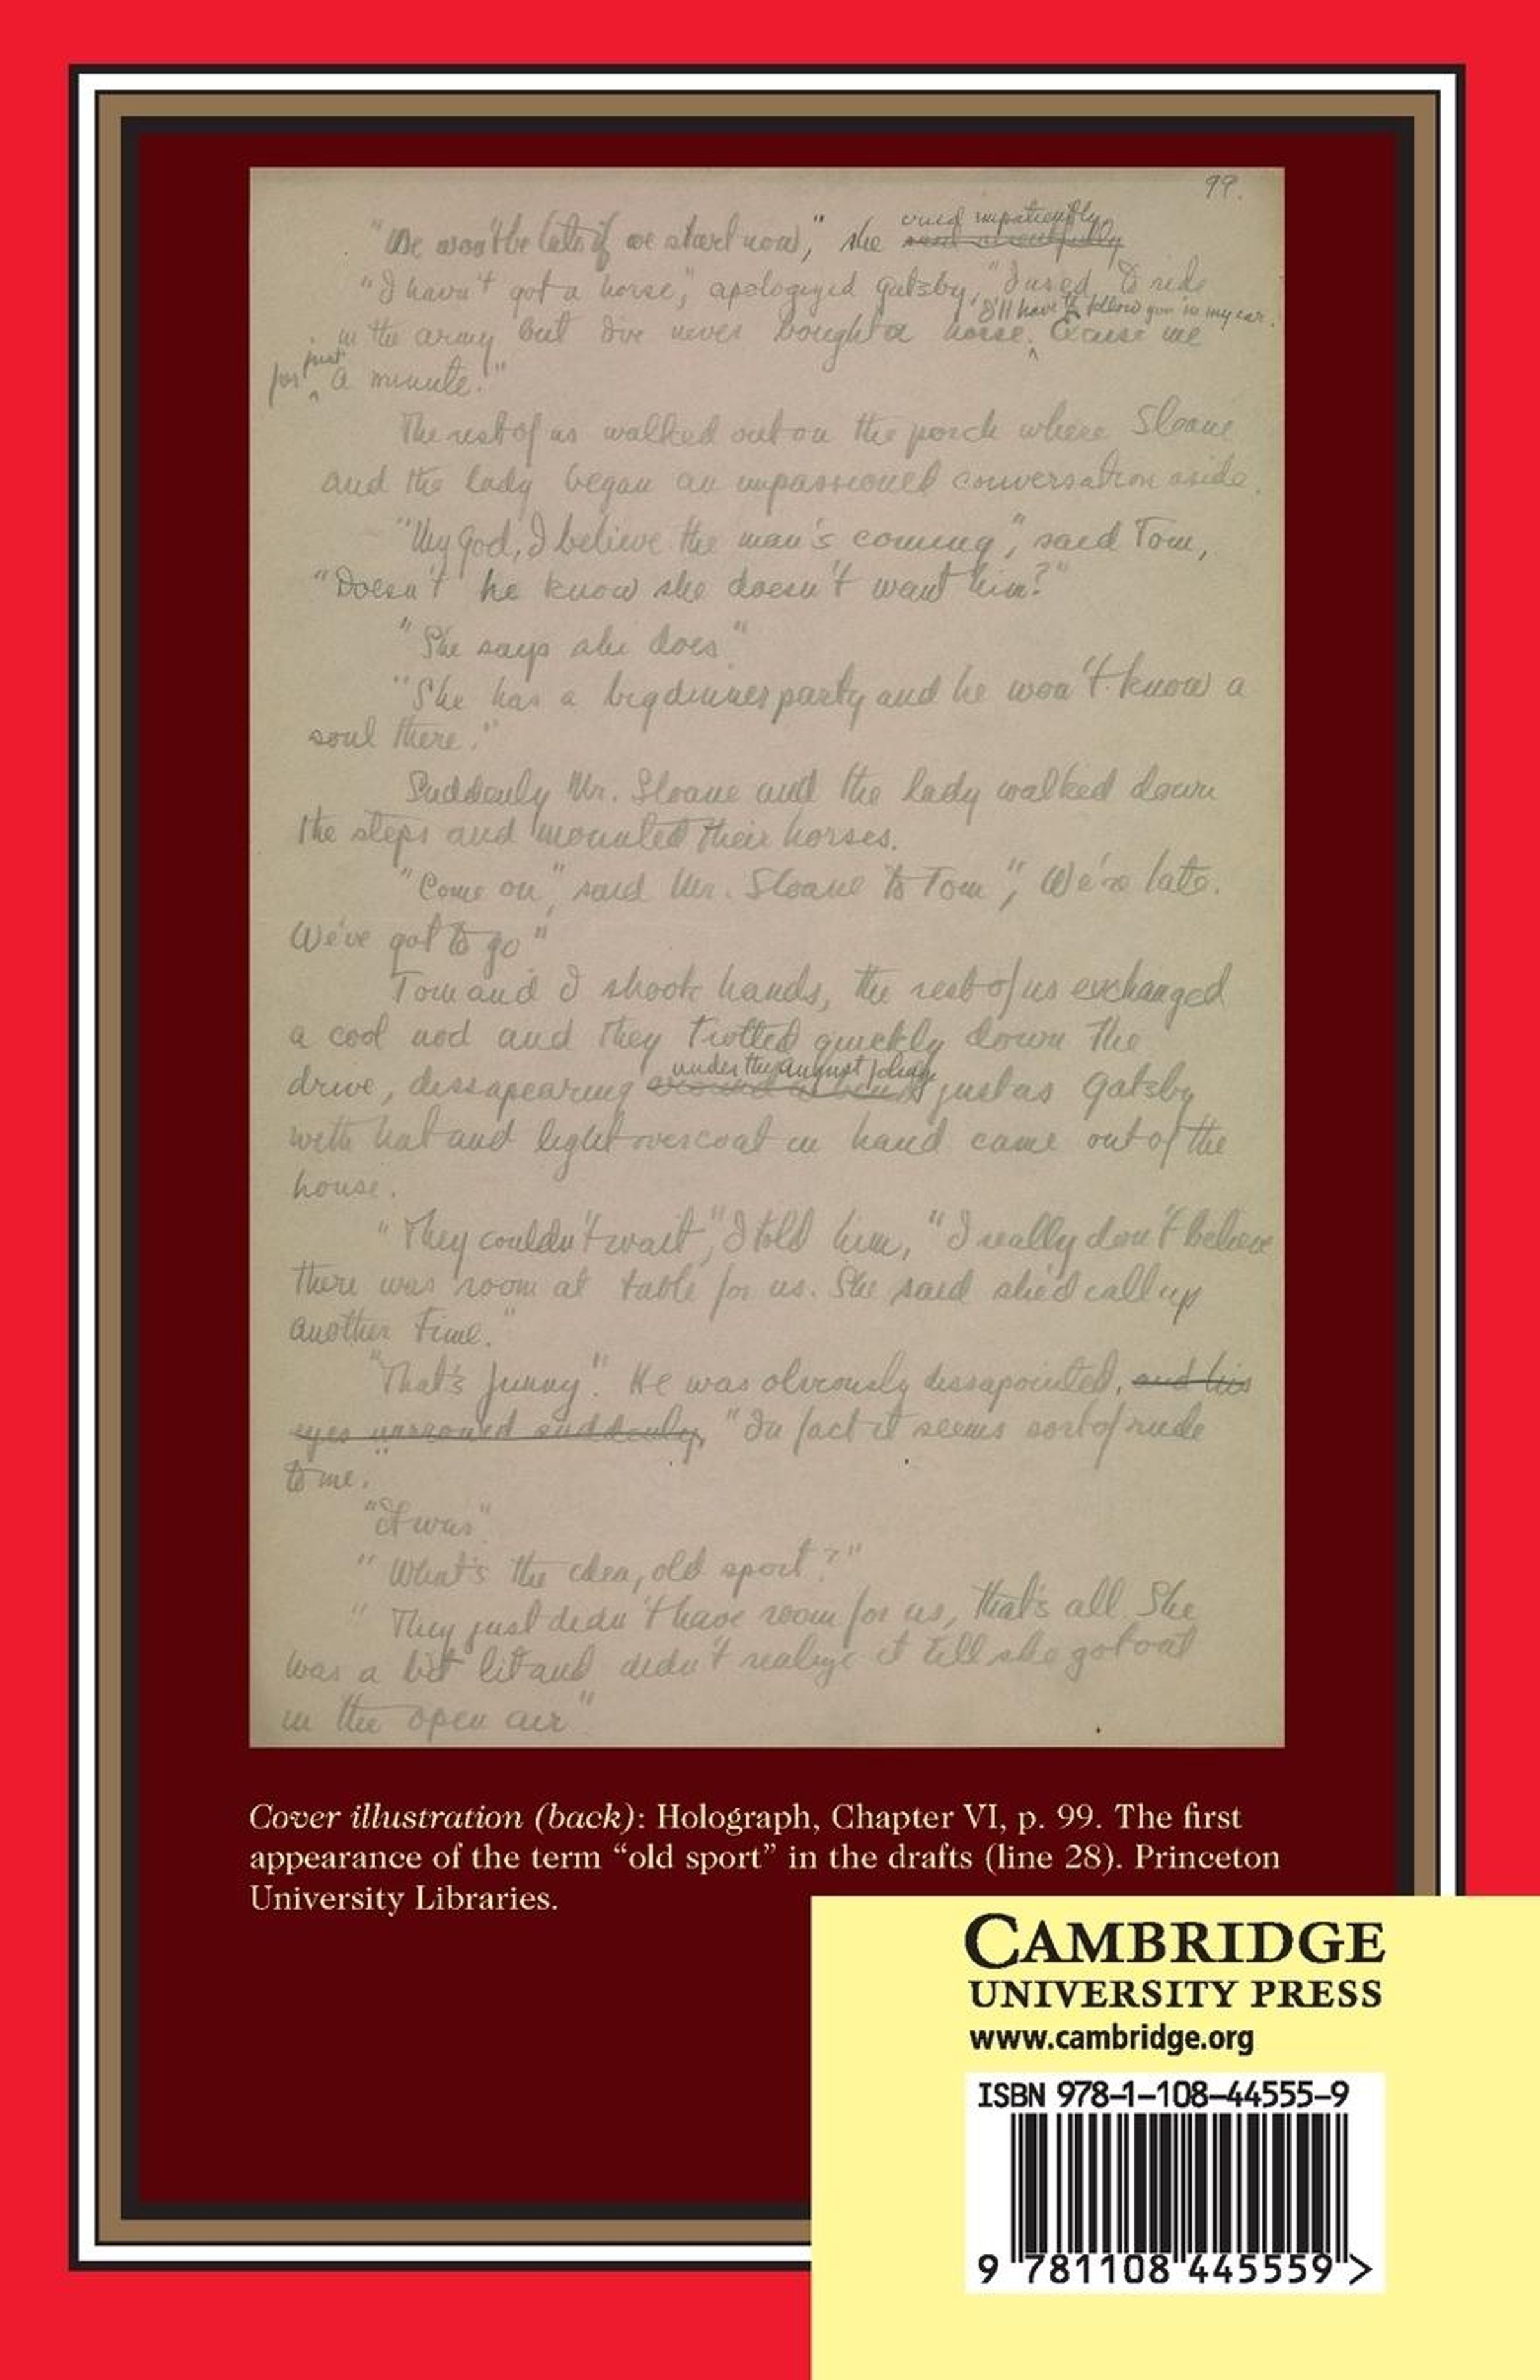 99.
cried impatiently
"We won't be late if we start now," she
"I havn't got a horse," apologized Gatsby, "I used to ride
I'll have to follow you in my car.
in the army but I've never bought a horse. Excuse me
just
for a minute."
The rest of us walked out on the porch where Sloane
and the lady began an impassioned conversation aside.
"My God, I believe the man's coming," said Tom,
"Doesn't he know she doesn't want him?"
"She says she does"
"She has a big dinner party and he won't know a
soul there."
Suddenly Mr. Sloane and the lady walked down
the steps and mounted their horses.
"Come on," said Mr. Sloane to Tom", We're late.
We've got to go"
Tom and I shook hands, the rest of us exchanged
a cool nod and they trotted quickly down the
under the august foliage
drive, dissapearing around a bend just as Gatsby
with hat and light overcoat in hand came out of the
house.
"They couldn't wait," I told him, "I really don't believe
there was room at table for us. She said she'd call up
another time."
"That's funny." He was obviously dissapointed, and his
eyes narrowed suddenly, "In fact it seems sort of rude
to me."
"It was"
"What's the idea, old sport?"
"They just didn't have room for us, that's all. She
was a bit lit and didn't realize it till she got out
in the open air"
Cover illustration (back): Holograph, Chapter VI, p. 99. The first
appearance of the term “old sport” in the drafts (line 28). Princeton
University Libraries.
CAMBRIDGE
UNIVERSITY PRESS
www.cambridge.org
ISBN 978-1-108-44555-9
9 781108 445559 >